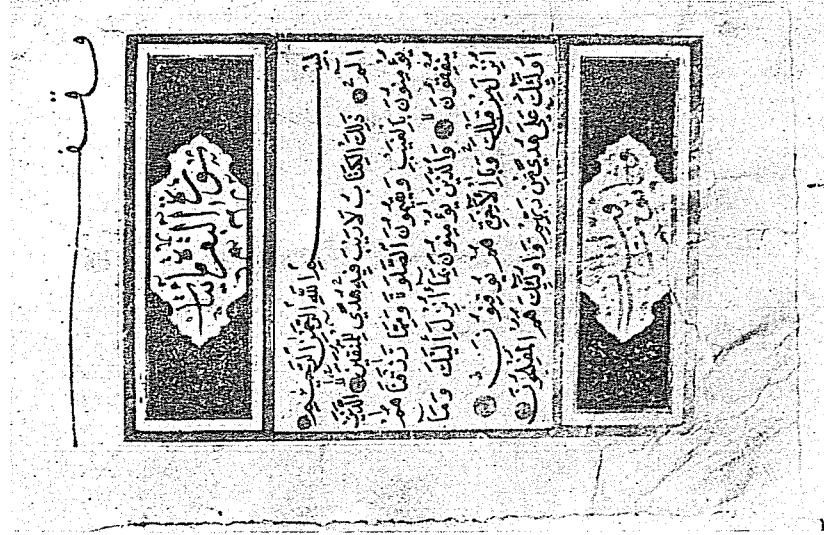 وقف
سورة البقرة
بِسْمِ اللَّهِ الرَّحْمَنِ الرَّحِيمِ
الٓمٓ ذَلِكَ الْكِتَابُ لَا رَيْبَ فِيهِ هُدًى لِلْمُتَّقِينَ الَّذِينَ
يُؤْمِنُونَ بِالْغَيْبِ وَيُقِيمُونَ الصَّلَوةَ وَمِمَّا رَزَقْنَاهُمْ
يُنْفِقُونَ وَالَّذِينَ يُؤْمِنُونَ بِمَا أُنْزِلَ إِلَيْكَ وَمَا
أُنْزِلَ مِنْ قَبْلِكَ وَبِالْآخِرَةِ هُمْ يُوقِنُونَ
أُولَئِكَ عَلَى هُدًى مِنْ رَبِّهِمْ وَأُولَئِكَ هُمُ الْمُفْلِحُونَ